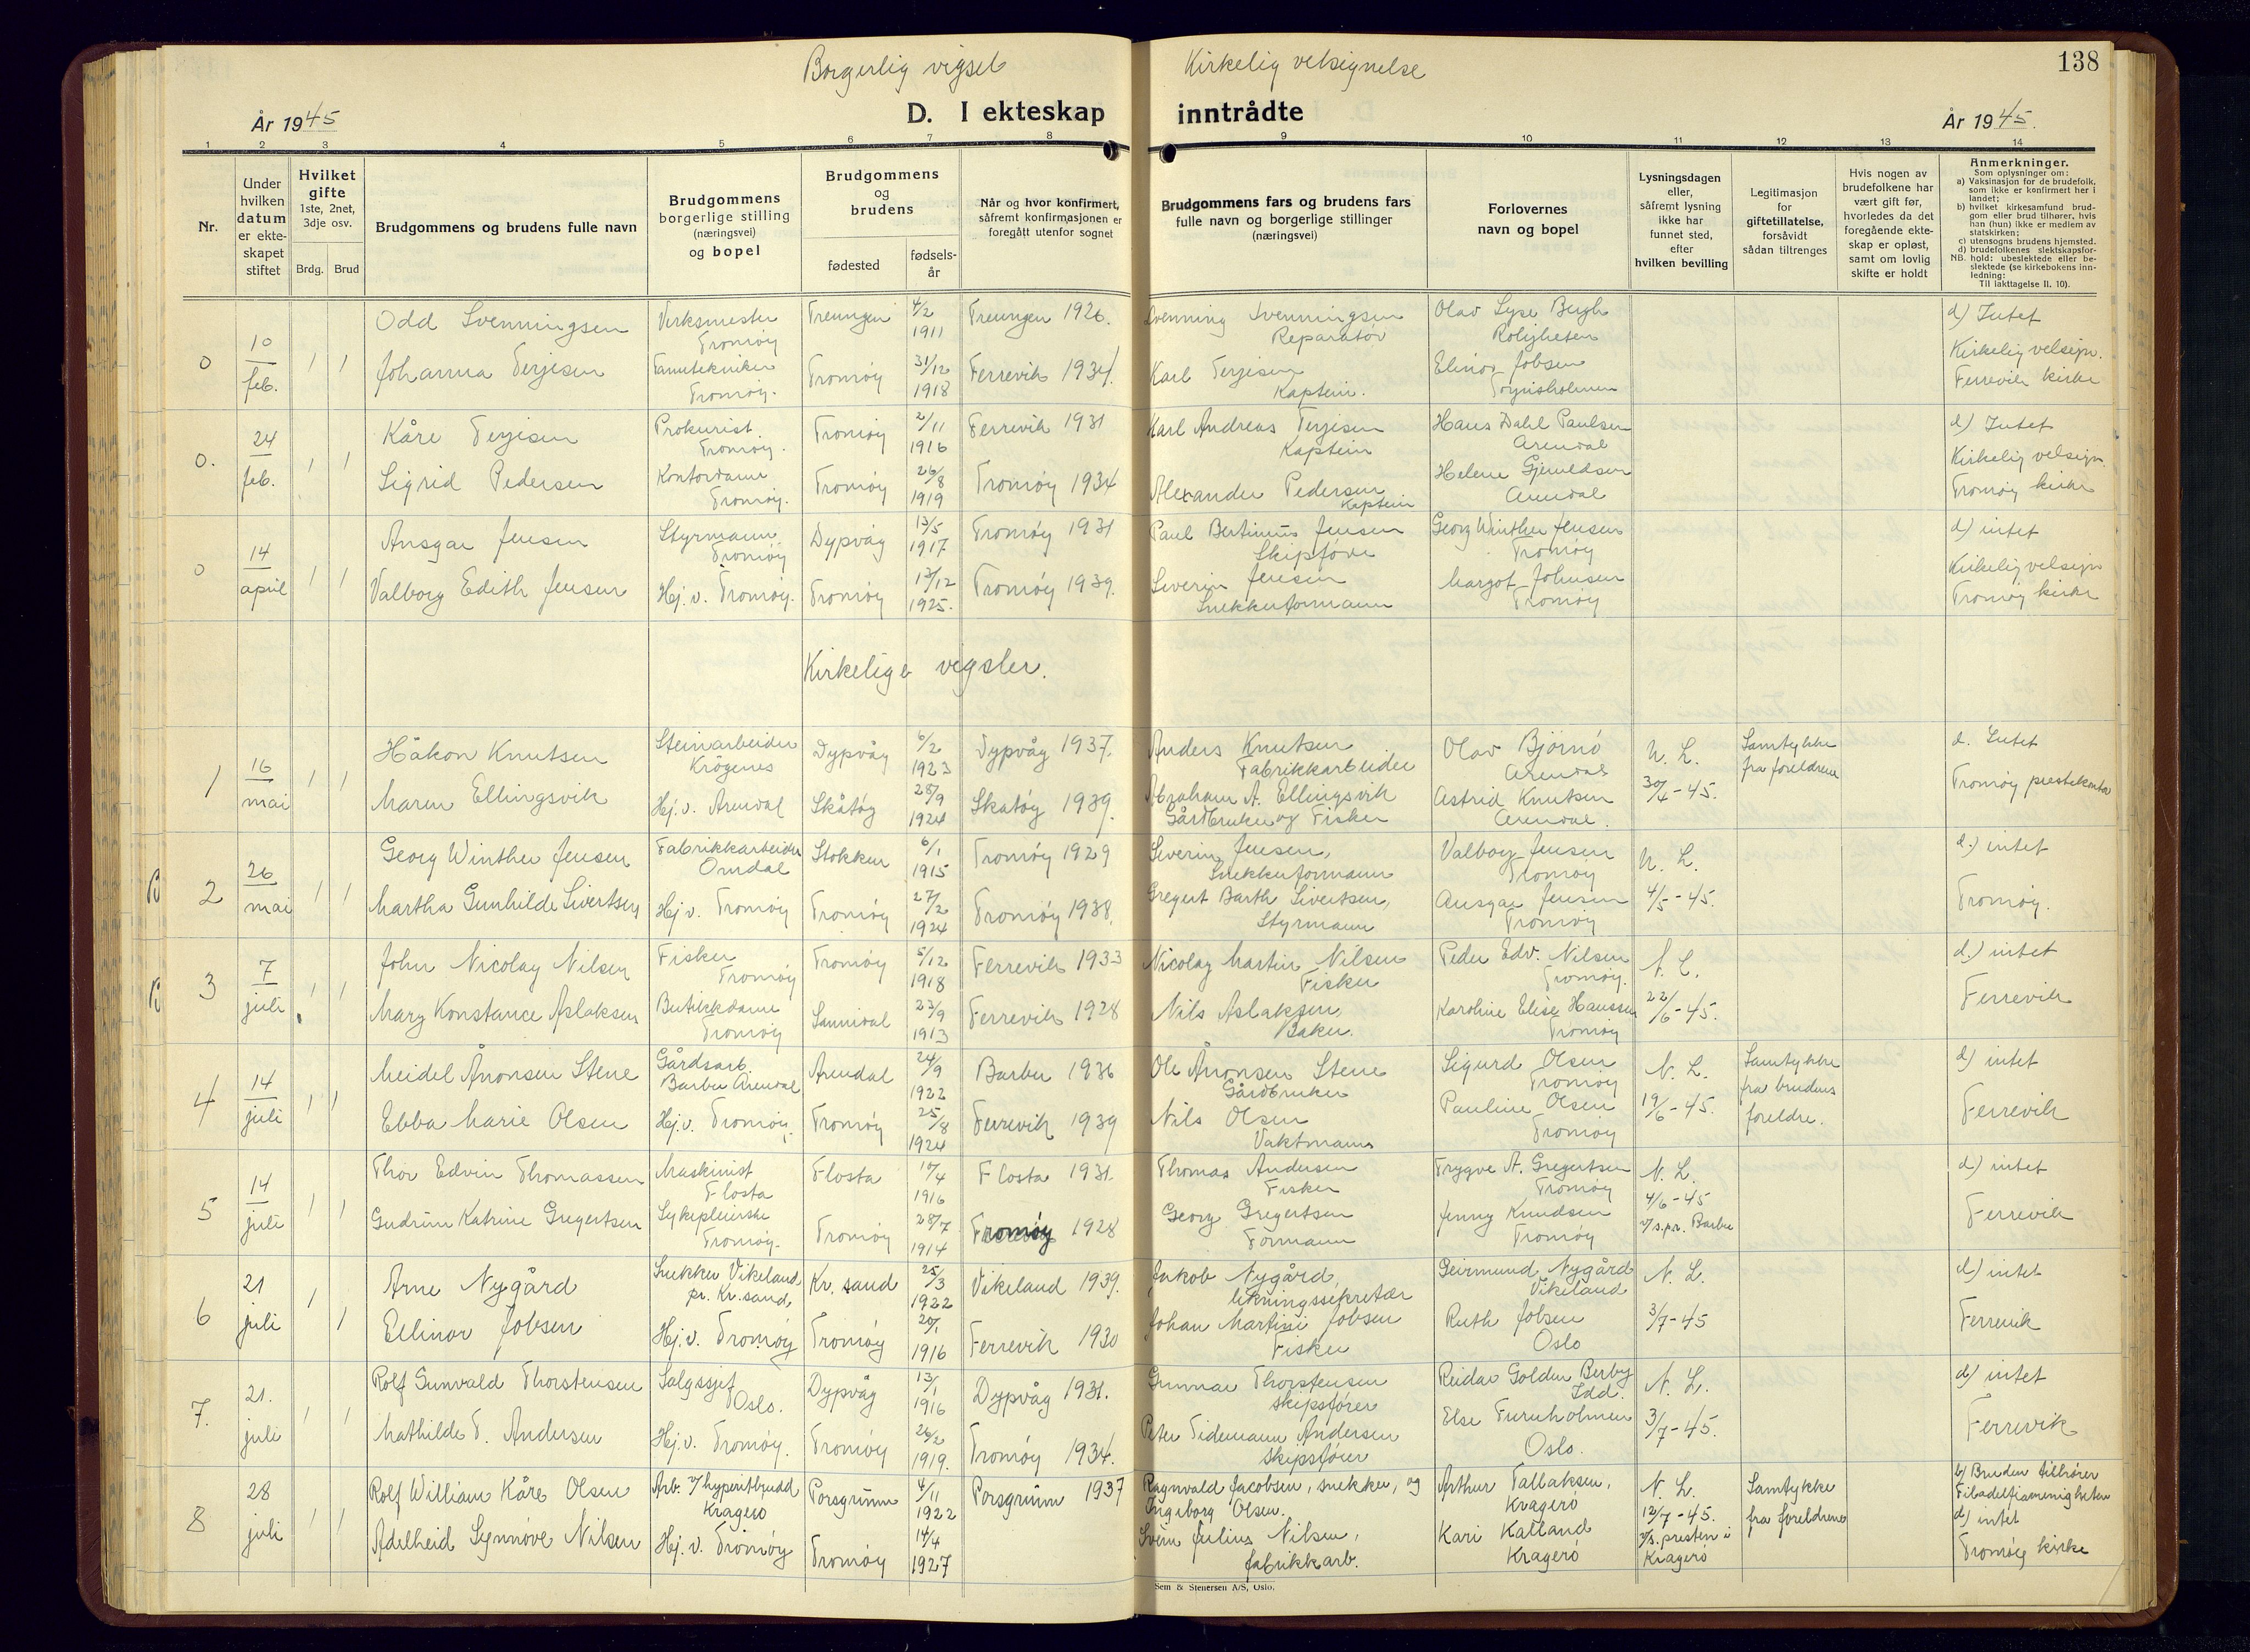 138
Borgerlig vigsel Kirkelig velsignelse
År 1945 D. I ekteskap inntrådte År 1945.
1 2 3 4 5 6 7 8 9 10 11 12 13 14
Nr.
Under hvilken datum er ekteskapet stiftet
Hvilket gifte
1ste, 2net, 3dje osv.
Brdg. Brud
Brudgommens og brudens fulle navn
Brudgommens borgerlige stilling (næringsvei) og bopel
Brudgommens og brudens
fødested
fødselsår
Når og hvor konfirmert, såfremt konfirmasjonen er foregått utenfor sognet
Brudgommens fars og brudens fars fulle navn og borgerlige stillinger (næringsvei)
Forlovernes navn og bopel
Lysningsdagen eller, såfremt lysning ikke har funnet sted, efter hvilken bevilling
Legitimasjon for giftetillatelse, forsåvidt sådan tiltrenges
Hvis nogen av brudefolkene har vært gift før, hvorledes da det foregående ekteskap er opløst, samt om lovlig skifte er holdt
Anmerkninger.
Som oplysninger om:
a) Vaksinasjon for de brudefolk, som ikke er konfirmert her i landet;
b) hvilket kirkesamfund brudgom eller brud tilhører, hvis han (hun) ikke er medlem av statskirken;
c) utensogns brudens hjemsted.
d) brudefolkenes slektskapsforhold: ubeslektede eller beslektede (se kirkebokens innledning:
NB.
Til iakttagelse II. 10).
0 10 feb. 1 1
Odd Svenningsen Verksmester Tromøy Treungen 4/2 1911 Treungen 1926. Svenning Svenningsen Reparatør Olav Lyse Bergh Roligheten d) Intet
Johanna Terjesen Tanntekniker Tromøy. Tromøy 31/12 1918 Færrevik 1934. Karl Terjesen Kaptein. Elinor Jobsen Kirkelig velsign. Færrevik kirke
0. 24 feb. 1 1
Kåre Terjesen Prokurist Tromøy. Tromøy 2/11 1916 Færrevik 1931 Karl Andreas Terjesen Kaptein Hans Dahl Paulsen Arendal d) Intet
Sigrid Pedersen Kontordame Tromøy. Tromøy 26/8 1919 Tromøy 1934 Alexander Pedersen Kaptein Helene Gjeruldsen Arendal Kirkelig velsign. Tromøy kirke
0 14 april 1 1
Ansgar Jensen Styrmann Tromøy Dypvåg 13/5 1917 Tromøy 1931 Paul Bertinius Jensen Skipsfører Georg Winther Jensen Tromøy d) intet
Valborg Edith Jensen Hj. v. Tromøy. Tromøy 13/12 1925. Tromøy 1939. Severin Jensen Snekkerformann Margot Johnsen Tromøy Kirkelig velsign Tromøy kirke
Kirkelige vigsler.
1 16 mai 1 1
Håkon Knutsen Steinarbeider Krøgenes Dypvåg 6/2 1923 Dypvåg 1937. Anders Knutsen Fabrikkarbeider Olav Bjørnø Arendal N. L. Samtykke fra foreldrene d. Intet
Maren Ellingsvik Hj. v. Arendal Skåtøy 28/9 1924 Skatøy 1939. Abraham A. Ellingsvik Gårdbruker og Fisker Astrid Knutsen Arendal. 30/4-45. Tromøy prestekontor
B 2 26 mai 1 1
Georg Winther Jensen Fabrikkarbeider Omdal Stokken 6/1 1915 Tromøy 1929 Severin Jensen, Snekkerformann Valborg Jensen Tromøy N. L. d.) intet
Martha Gunhilde Sivertsen Hj v. Tromøy Tromøy 27/2 1924 Tromøy 1938. Gregert Barth Sivertsen, Styrmann Ansgar Jensen Tromøy 4/5-45. Tromøy.
B 3 7 juli 1 1
John Nicolay Nilsen Fisker Tromøy Tromøy 5/12 1918 Færrevik 1933 Nicolay Martin Nilsen Fisker Peder Edv. Nilsen Tromøy. N. L. d.) intet
Mary Konstance Aslaksen Butikkdame Tromøy Sannidal 23/9 1913 Færrevik 1928 Nils Aslaksen, Baker. Karoline Elise Hanssen Tromøy 22/6-45. Færrevik
4 14 juli 1 1
Meidel Ånonsen Stene Gårdsarb. Barbu Arendal Arendal 24/9 1922 Barbu 1936 Ole Ånonsen Stene Gårdbruker Sigurd Olsen Tromøy N. L. Samtykke fra brudens foreldre. d) intet
Ebba Marie Olsen Hj. v. Tromøy. Tromøy 25/8 1924 Færrevik 1939 Nils Olsen Vaktmann Pauline Olsen Tromøy 19/6-45. Færrevik
5 14 juli 1 1
Thor Edvin Thomassen Maskinist Flosta Flosta 1916 Flosta 1931 Thomas Andersen Fisker Trygve A. Gregertsen Tromøy N. L. d) intet
Gudrun Katrine Gregertsen Sykepleierske Tromøy. Tromøy 28/7 1914 Tromøy 1928 Georg Gregertsen Formann Jenny Knudsen Tromøy 4/6-45 v/s.pr. Barbu Færrevik
6 21 juli 1 1
Arne Nygård Snekker Vikeland pr. Kr.sand. Kr. sand 25/3 1922 Vikeland 1939. Jakob Nygård, likningssekretær Geirmund Nygård Vikeland N. L. d) intet
Ellinor Jobsen Hj. v. Tromøy Tromøy 20/1 1916 Færrevik 1930 Johan Martini Jobsen Fisker Ruth Jobsen Oslo 3/7-45 Færrevik
7. 21. juli 1 1
Rolf Gunvald Thorstensen Salgssjef Oslo. Dypvåg 13/1 1916 Dypvåg 1931. Gunnar Thorstensen skipsfører Reidar Golden Berby Idd. N. L. d) intet
Mathilde T. Andersen Hj. v. Tromøy. Tromøy 26/2 1919. Tromøy 1934. Peter Tidemann Andersen skipsfører Else Furuholmen Oslo. 3/7-45. Færrevik
8 28 juli 1 1
Rolf William Kåre Olsen Arb. v/hyperitbrudd Kragerø Porsgrunn 4/11 1922 Porsgrunn 1937 Ragnvald Jacobsen, snekker, og Ingeborg Olsen. Arthur Tallaksen, Kragerø N. L. Samtykke fra foreldrene b) Bruden tilhører Filadelfiamenigheten
Adelheid Synnøve Nilsen Hj. v. Tromøy Tromøy 14/4 1927 Julius Nilsen, fabrikkarb. Kari Kalland Kragerø 12/7-45. v/s. presten i Kragerø d) intet Tromøy kirke
Sem & Stenersen A/S, Oslo.